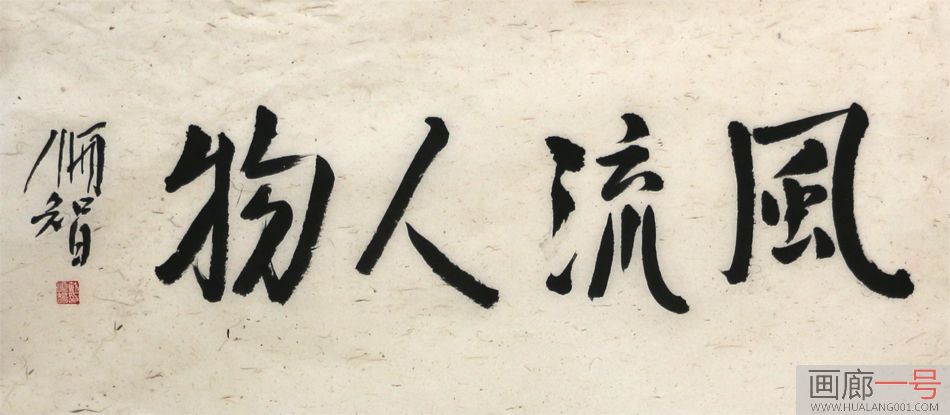 風流人物
佩智
画廊一号
WWW.HUALANG001.COM